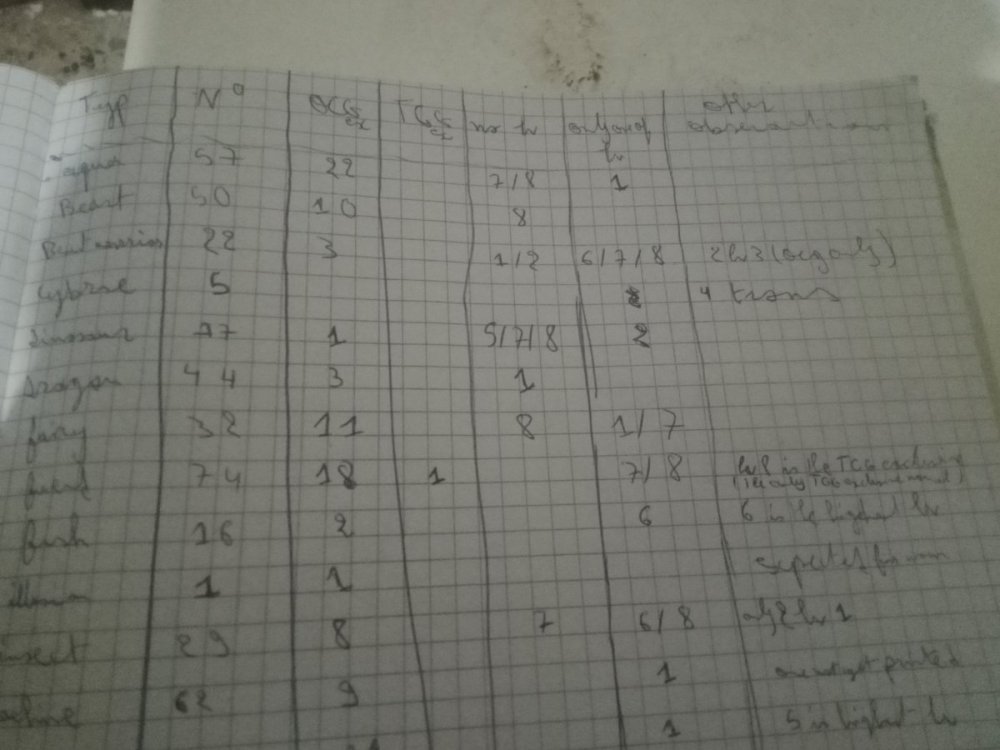 Typ N° OCG ex TCG ex no lv only one of lv other observations
aqua 57 22 7/8 1
Beast 50 10 8
Beast warrior 22 3 1/2 6/7/8 2 lv 3 (ocg only)
Cyberse 5 4
dinosaur 1 5/7/8 2
dragon 44 3 1
fairy 32 11 8 1/7
fiend 74 18 1 7/8 lv 8 is the TCG exclusive
(the only TCG exclusive normal)
fish 16 2 6 6 is he highest lv
illusion 1 1
insect 29 8 7 6/8 only 2 lv 1
machine 62 9 1 printed
1 5 is highest lv